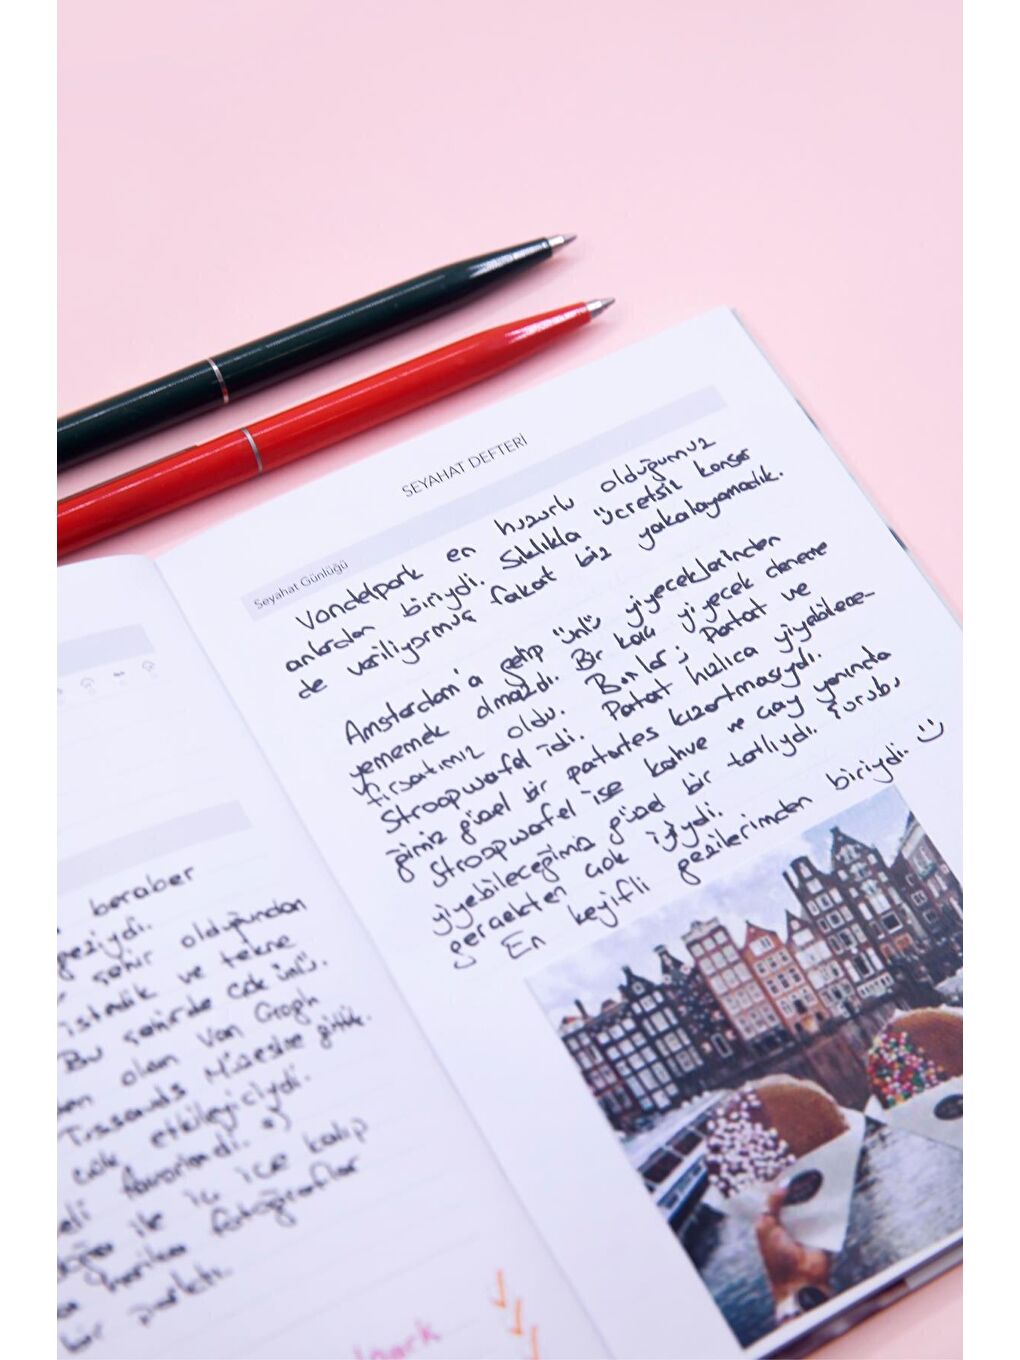 beraber
geziydi.
şehir olduğundan
istedik ve tekne
Bu şehirde çok ünlü.
olan Van Gogh
Tussauds Müzesine gittik.
çok etkileyiciydi.
favorimdi. :)
ile iç içe kalıp
harika fotoğraflar
bir parktı.
park
SEYAHAT DEFTERİ
Seyahat Günlüğü
Vondelpark en huzurlu olduğumuz
anlardan biriydi. Sıklıkla ücretsiz konser
de veriliyormuş fakat biz yakalayamadık.
Amsterdam'a gelip ünlü yiyeceklerinden
yememek olmazdı. Bir kaç yiyecek deneme
fırsatımız oldu. Bonlar; Patat ve
Stroopwafel idi. Patat hızlıca yiyebilece-
ğimiz güzel bir patates kızartmasıydı.
Stroopwafel ise kahve ve çay yanında
yiyebileceğimiz güzel bir tatlıydı. Şurubu
gerçekten çok iyiydi.
En keyifli gezilerimden biriydi. :)